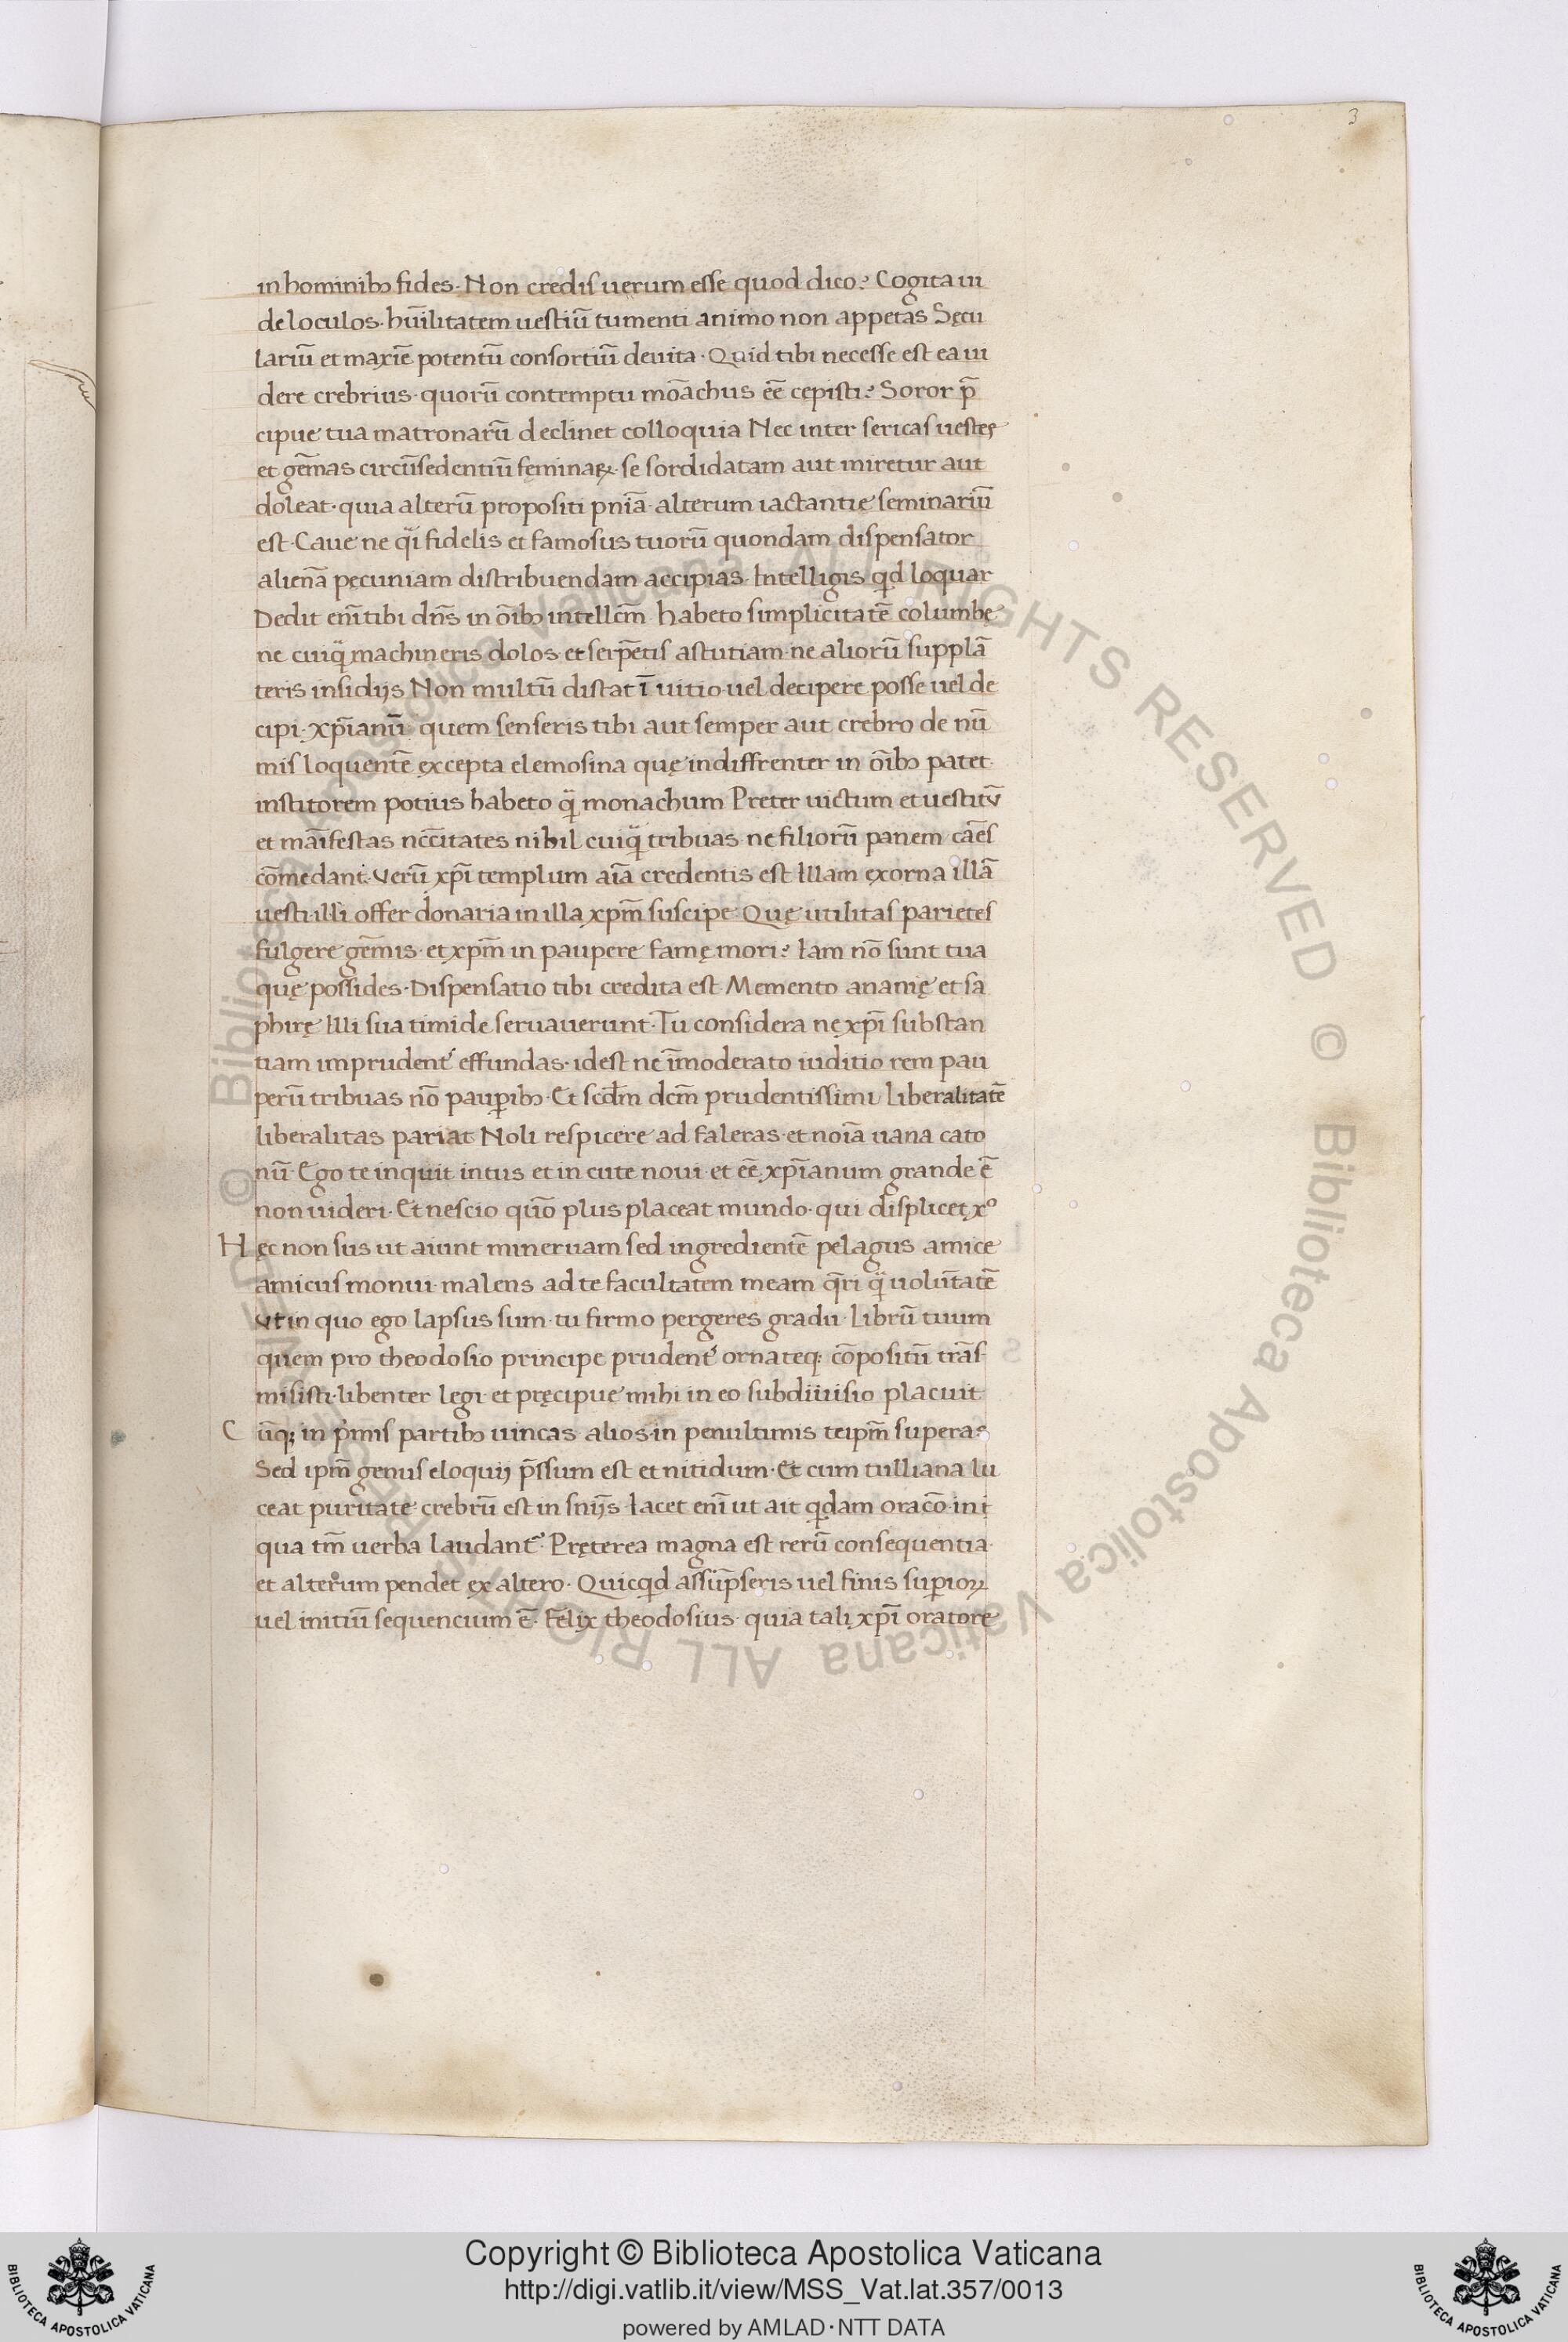 3
in hominibꝫ fides · Non credis uerum esse quod dico? Cogita iu
de loculos · hūilitatem uestiū tumenti animo non appetas Sęcu
lariū et maxīe potentū consortiū deuita · Quid tibi necesse est ea ui
dere crebrius · quorū contemptu mōachus eē cepisti? Soror p̄
cipue tua matronarū declinet colloquia Nec inter sericas uestes
et gēmas circūsedentiū feminaꝝ · se sordidatam aut miretur aut
doleat · quia alterū propositi pnīa · alterum iactantie seminariū
est · Caue ne q̈i fidelis et famosus tuorū quondam dispensator
alienā pecuniam distribuendam accipias · Intelligis qd loquar
Dedit enī tibi dn̄s in oībꝫ intellcm̄ · habeto simplicitatē columbę
ne cuiq̈ machineris dolos · et serpētis astutiam · ne aliorū supplā
teris insidijs Non multū distat ī uitio · uel decipere posse uel de
cipi · xp̄ianū · quem senseris tibi aut semper aut crebro de nū
mis loquentē excepta elemosina quę indiffrenter in oībꝫ patet
institorem potius habeto q̈ monachum Preter uictum et uestitū
et maīfestas ncc̄itates nihil cuiq̈ tribuas · ne filiorū panem caēs
cōmedant · verū xp̄i templum aīa credentis est Illam exorna illā
uesti illi offer donaria in illa xpm̄ suscipe · Quę utilitas parietes
fulgere gēmis · et xpm̄ in paupere famę mori? Iam nō sunt tua
quę possides · Dispensatio tibi credita est Memento ananię et sa
phirę Illi sua timide seruauerunt · Tu considera ne xp̄i substan
tiam imprudent᾽ effundas · idest ne īmoderato iuditio rem pau
perū tribuas nō paupibꝫ · Et scdm̄ dcm̄ prudentissimi liberalitatē
liberalitas pariat Noli respicere ad faleras · et noīa uana cato
nū · Ego te inquit intus et in cute noui · et eē xp̄ianum grande ē
non uideri · Et nescio quō plus placeat mundo · qui displicet xº
Hęc non sus ut aiunt mineruam sed ingredientē pelagus amice
amicus monui · malens ad te facultatem meam q̄ri q̈ volūtatē
vt in quo ego lapsus sum · tu firmo pergeres gradu · Librū tuum
quem pro theodosio principe prudent᾽ ornateqꝫ cōpositū trās
misisti · libenter legi · et pręcipue mihi in eo subdiuisio placuit
Cūqꝫ in p̍mis partibꝫ uincas alios · in penultimis teipm̄ superas
Sed ipm̄ genus eloquij p̄ssum est et nitidum · Et cum tulliana lu
ceat puritate crebrū est in sn̄ijs · Iacet enī ut ait qdam oracō · in i
qua tm̄ uerba laudant᾽ · Pręterea magna est rerū consequentia
et alterum pendet ex altero · Quicqd assūpseris uel finis supioꝝ
uel initiū sequencium ē · Felix theodosius · quia tali xp̄i oratore
Copyright © Biblioteca Apostolica Vaticana
http://digi.vatlib.it/view/MSS_Vat.lat.357/0013
powered by AMLAD · NTT DATA
BIBLIOTECA APOSTOLICA VATICANA
BIBLIOTECA APOSTOLICA VATICANA
© Biblioteca Apostolica Vaticana ALL RIGHTS RESERVED
© Biblioteca Apostolica Vaticana ALL RIGHTS RESERVED